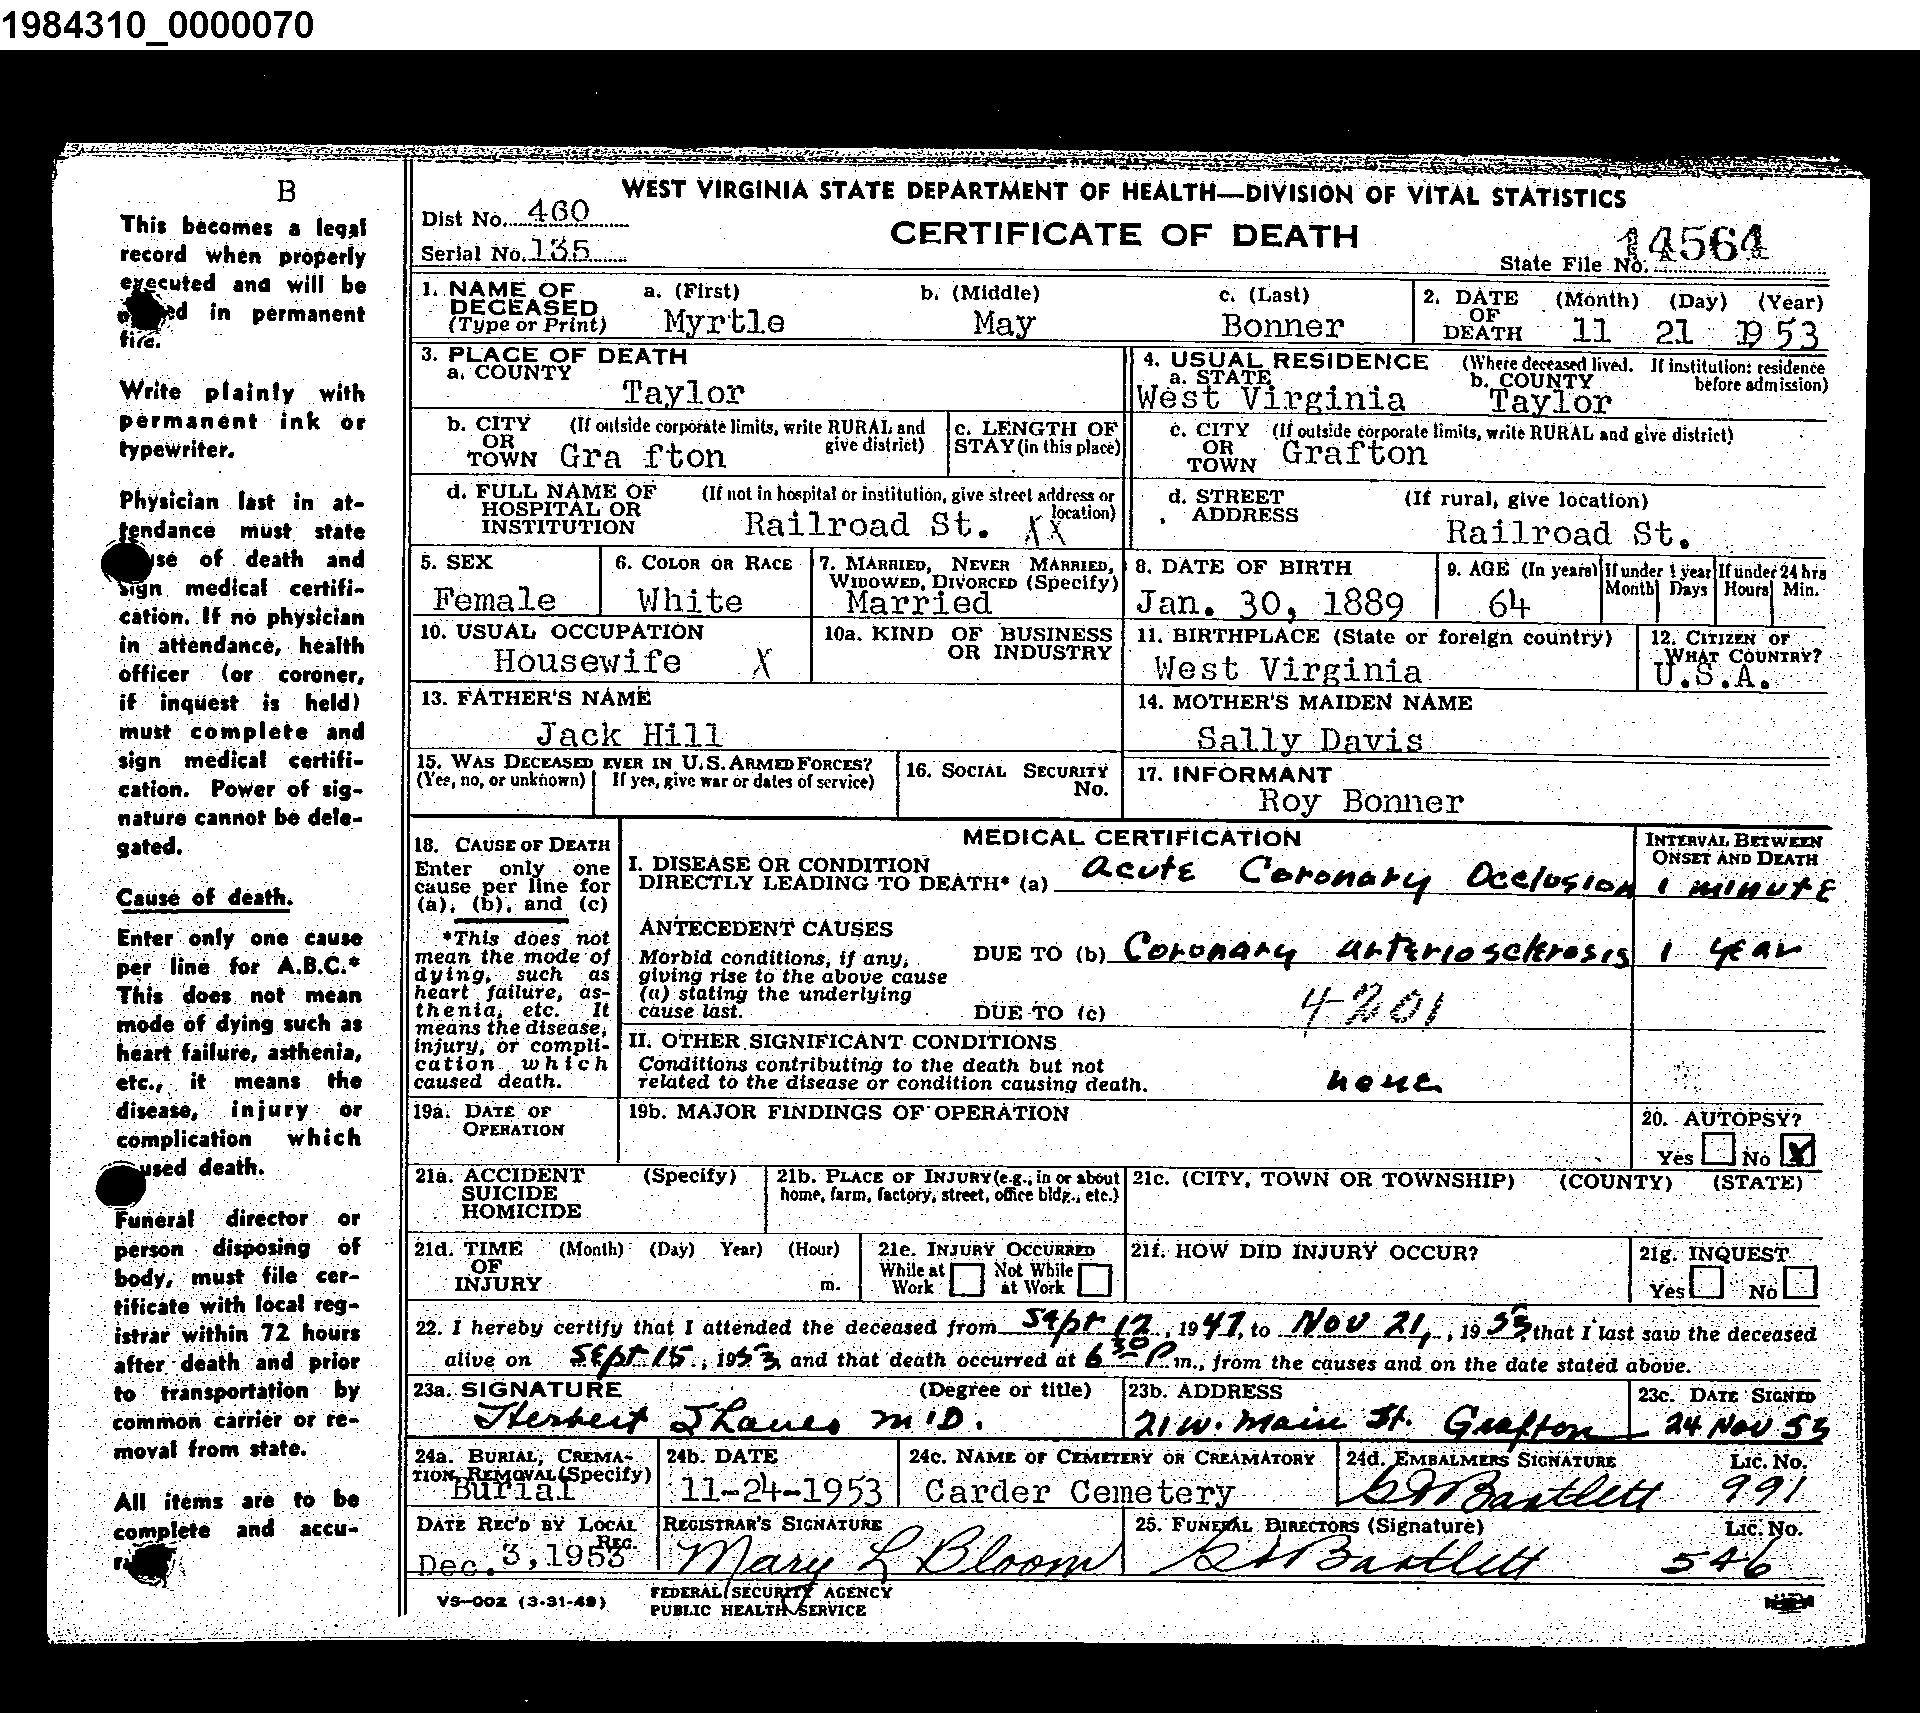 1984310_0000070
B
This becomes a legal
record when properly
executed and will be
in permanent
file.
Write plainly with
permanent ink or
typewriter.
Physician last in at-
tendance must state
cause of death and
sign medical certifi-
cation. If no physician
in attendance, health
officer (or coroner,
if inquest is held)
must complete and
sign medical certifi-
cation. Power of sig-
nature cannot be dele-
gated.
Cause of death.
Enter only one cause
per line for A.B.C.*
This does not mean
mode of dying such as
heart failure, asthenia,
etc., it means the
disease, injury or
complication which
caused death.
Funeral director or
person disposing of
body, must file cer-
tificate with local reg-
istrar within 72 hours
after death and prior
to transportation by
common carrier or re-
moval from state.
All items are to be
complete and accu-
WEST VIRGINIA STATE DEPARTMENT OF HEALTH—DIVISION OF VITAL STATISTICS
Dist No. 460
CERTIFICATE OF DEATH
Serial No. 135
State File No. 14564
1. NAME OF DECEASED (Type or Print) a. (First) Myrtle b. (Middle) May c. (Last) Bonner
2. DATE OF DEATH (Month) (Day) (Year) 11 21 1953
3. PLACE OF DEATH
a. COUNTY Taylor
4. USUAL RESIDENCE (Where deceased lived. If institution: residence before admission)
a. STATE West Virginia b. COUNTY Taylor
b. CITY OR TOWN (If outside corporate limits, write RURAL and give district) Gra fton
c. LENGTH OF STAY (in this place)
c. CITY OR TOWN (If outside corporate limits, write RURAL and give district) Grafton
d. FULL NAME OF HOSPITAL OR INSTITUTION (If not in hospital or institution, give street address or location) Railroad St. XX
d. STREET ADDRESS (If rural, give location) Railroad St.
5. SEX Female
6. COLOR OR RACE White
7. MARRIED, NEVER MARRIED, WIDOWED, DIVORCED (Specify) Married
8. DATE OF BIRTH Jan. 30, 1889
9. AGE (In years) 64 If under 1 year Month Days If under 24 hrs Hours Min.
10. USUAL OCCUPATION Housewife X
10a. KIND OF BUSINESS OR INDUSTRY
11. BIRTHPLACE (State or foreign country) West Virginia
12. CITIZEN OF WHAT COUNTRY? U.S.A.
13. FATHER'S NAME Jack Hill
14. MOTHER'S MAIDEN NAME Sally Davis
15. WAS DECEASED EVER IN U.S. ARMED FORCES? (Yes, no, or unknown) If yes, give war or dates of service)
16. SOCIAL SECURITY No.
17. INFORMANT Roy Bonner
18. CAUSE OF DEATH
Enter only one
cause per line for
(a), (b), and (c)
*This does not
mean the mode of
dying, such as
heart failure, as-
thenia, etc. It
means the disease,
injury, or compli-
cation which
caused death.
MEDICAL CERTIFICATION
INTERVAL BETWEEN ONSET AND DEATH
I. DISEASE OR CONDITION
DIRECTLY LEADING TO DEATH* (a) Acute Coronary Occlusion 1 minute
ANTECEDENT CAUSES
Morbid conditions, if any,
giving rise to the above cause
(a) stating the underlying
cause last.
DUE TO (b) Coronary arteriosclerosis 1 year
DUE TO (c)
4201
II. OTHER SIGNIFICANT CONDITIONS
Conditions contributing to the death but not
related to the disease or condition causing death. none
19a. DATE OF OPERATION
19b. MAJOR FINDINGS OF OPERATION
20. AUTOPSY?
Yes No X
21a. ACCIDENT SUICIDE HOMICIDE (Specify)
21b. PLACE OF INJURY (e.g., in or about home, farm, factory, street, office bldg., etc.)
21c. (CITY, TOWN OR TOWNSHIP) (COUNTY) (STATE)
21d. TIME OF INJURY (Month) (Day) Year) (Hour) m.
21e. INJURY OCCURRED While at Work Not While at Work
21f. HOW DID INJURY OCCUR?
21g. INQUEST Yes No
22. I hereby certify that I attended the deceased from Sept 12, 1947, to Nov 21, 1953, that I last saw the deceased
alive on Sept 15, 1953, and that death occurred at 6 30 P m., from the causes and on the date stated above.
23a. SIGNATURE (Degree or title) Herbert MD.
23b. ADDRESS 21 W. Main St. Grafton
23c. DATE SIGNED 24 Nov 53
24a. BURIAL, CREMATION, REMOVAL (Specify) Burial
24b. DATE 11-24-1953
24c. NAME OF CEMETERY OR CREAMATORY Carder Cemetery
24d. EMBALMERS SIGNATURE Bartlett Lic. No. 991
DATE REC'D BY LOCAL REG. Dec. 3, 1953
REGISTRAR'S SIGNATURE Mary L Bloom
25. FUNERAL DIRECTORS (Signature) Bartlett Lic. No. 546
VS-002 (3-31-49)
FEDERAL SECURITY AGENCY
PUBLIC HEALTH SERVICE